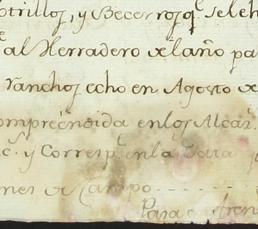 otrillos, y Becerros q.e se le h
al Herradero de laño pa
ranchos echo en Agosto de
compreendida en los Alcar.
c. y Corresp. en la Data
nes de Campo
Para